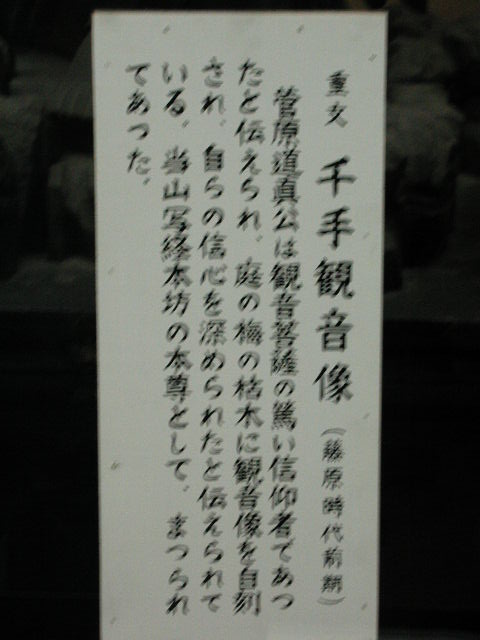 重文 千手観音像 (藤原時代前期)
菅原道真公は観音菩薩の篤い信仰者であっ
たと伝えられ、庭の梅の枯木に観音像を自刻
され、自らの信心を深められたと伝えられて
いる。当山写経本坊の本尊として、まつられ
てあった。